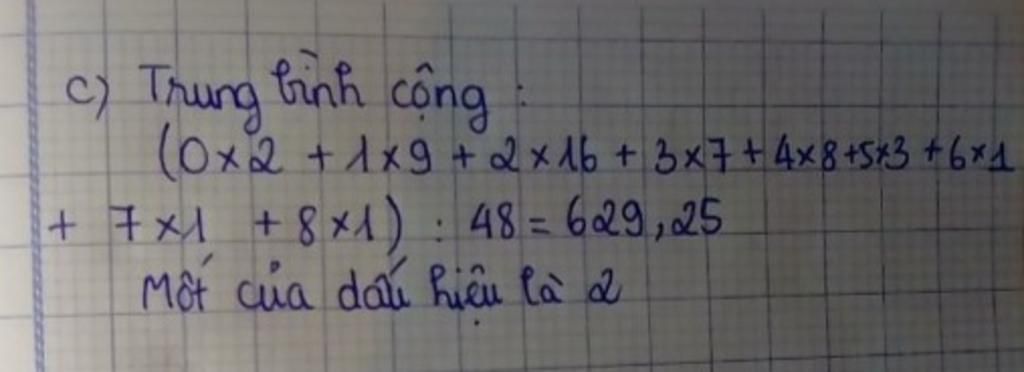 c) Trung bình cộng :
(0 × 2 + 1 × 9 + 2 × 16 + 3 × 7 + 4 × 8 + 5 × 3 + 6 × 1
+ 7 × 1 + 8 × 1) : 48 = 629,25
Mốt của dấu hiệu là 2